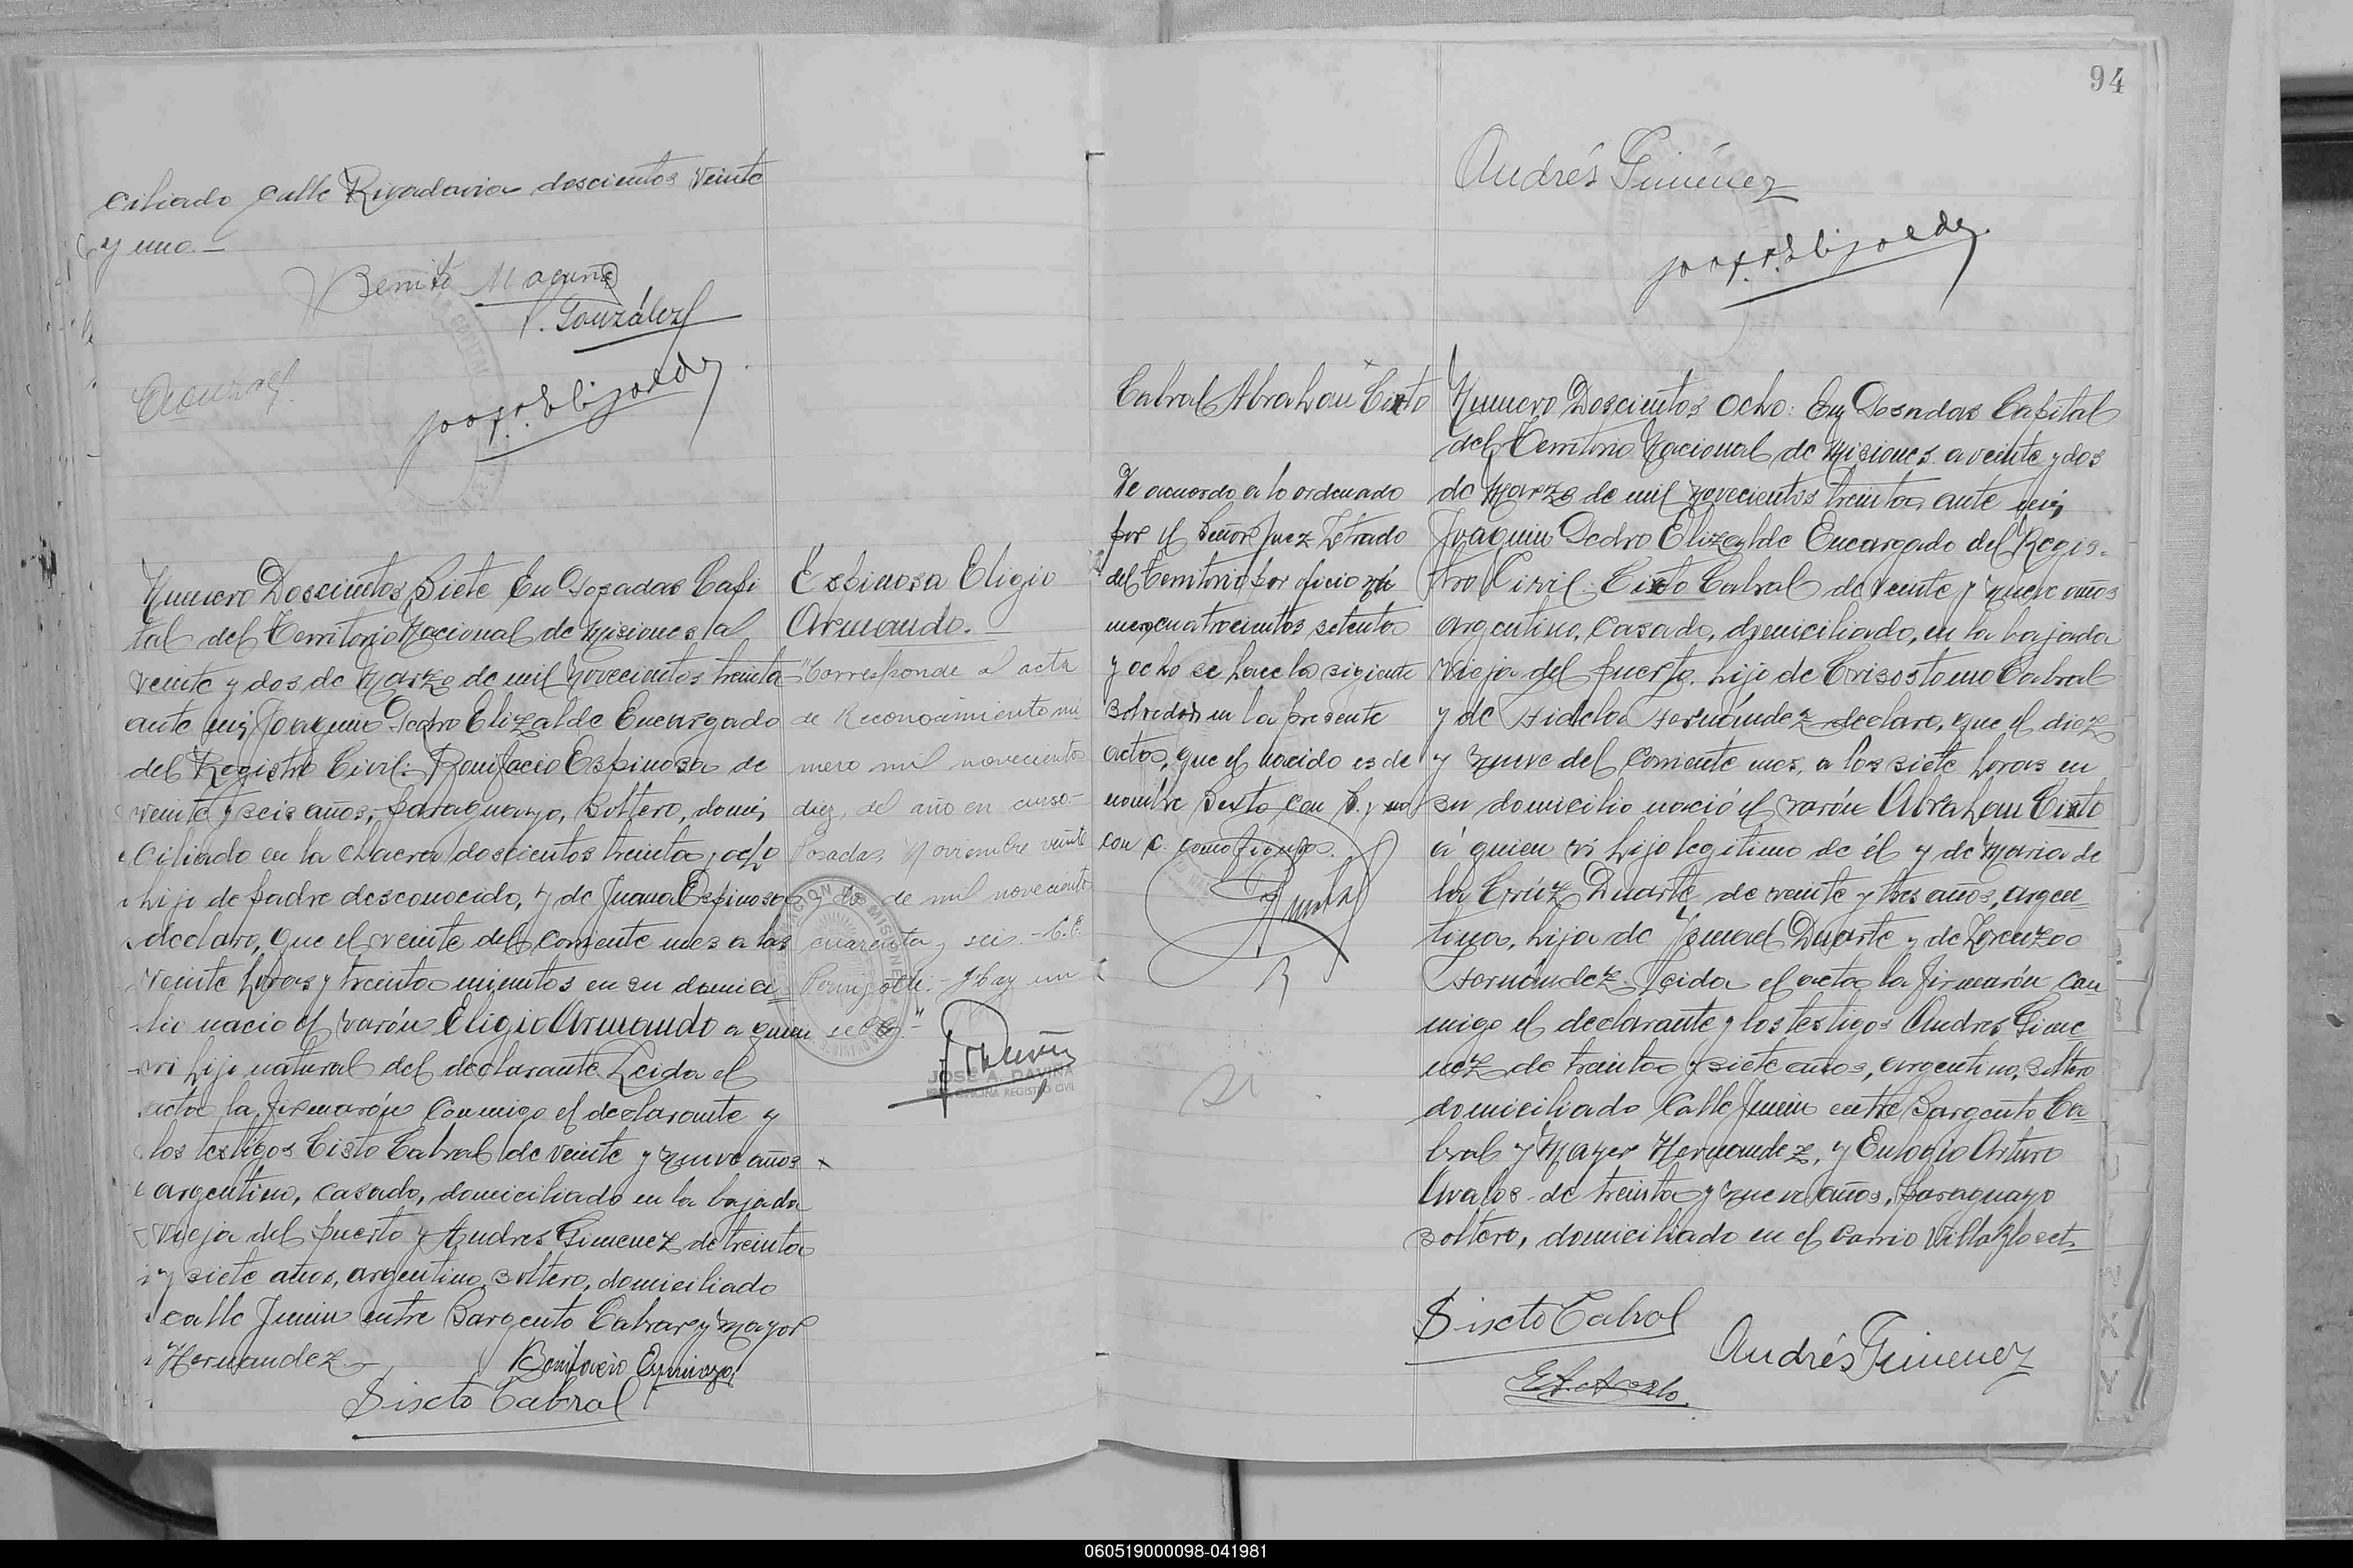 ciliado calle Rivadavia doscientos veinte
y uno.—
Benito
P. González
Numero Doscientos Siete En Posadas Capi
tal del Territorio Nacional de Misiones a
veinte y dos de Marzo de mil novecientos treinta
ante mi, Joaquin Pedro Elizalde Encargado
del Registro Civil: Bonifacio Espinosa de
veinte y seis años, paraguayo, Soltero, domi,
ciliado en la chacra doscientos treinta y ocho
hijo de padre desconocido, y de Juana Espinosa
declaro, que el veinte del corriente mes a las
veinte horas y treinta minutos en su domici
lio nacio el varón Eligio Armando a quien
vi hijo natural del declarante. Leida el
acta la firmarón conmigo el declarante y
los testigos Cisto Cabral de veinte y nueve años
argentino, casado, domiciliado en la bajada
vieja del puerto y Andres Gimenez de treinta
y siete años, argentino, soltero, domiciliado
calle Junin entre Sargento Cabral y Mayor
Hernandez—
Bonifacio Espinoza
Siscto Cabral
Espinosa Eligio
Armando.—
"Corresponde al acta
de Reconocimiento nú
mero mil novecientos
diez, del año en curso.—
Posadas, Noviembre veinte
y dos de mil novecientos
cuarenta y seis.—
hay un
sello."
JOSE A. DAVIÑA
JEFE OFICINA REGISTRO CIVIL
94
Andrés Giménez
Cabral Abrahan Cisto
De acuerdo a lo ordenado
por el Señor Juez Letrado
del Territorio por oficio nú
mero cuatrocientos setenta
y ocho se hace la sigiente
en la presente
acta, que el nacido es de
nombre Sexto con S. y no
con C. como
Numero Doscientos Ocho: En Posadas Capital
del Territorio Nacional de Misiones a veinte y dos
de Marzo de mil novecientos treinta, ante mi,
Joaquin Pedro Elizalde Encargado del Regis-
tro Civil: Cisto Cabral de veinte y nueve años
argentino, casado, domiciliado, en la bajada
vieja del puerto, hijo de Crisostomo Cabral
y de Fidela Fernández declaro, que el diez
y nueve del corriente mes, a las siete horas en
su domicilio nació el varón Abrahan Cisto
á quien vi hijo legitimo de él y de Maria de
la Crúz Duarte, de veinte y tres años, argen_
tina, hija de Ismael Duarte y de Lorenza
Fernández. Leida el acta la firmarón con
migo el declarante y los testigos Andres Gime
nez de treinta y siete años, argentino, soltero
domiciliado calle Junin entre Sargento Ca_
bral y Mayor Hernandez, y Eulogio Arturo
Avalos de treinta y nueve años, paraguayo
soltero, domiciliado en el barrio Villa
Siscto Cabral
Andrés Gimenez
060519000098-041981